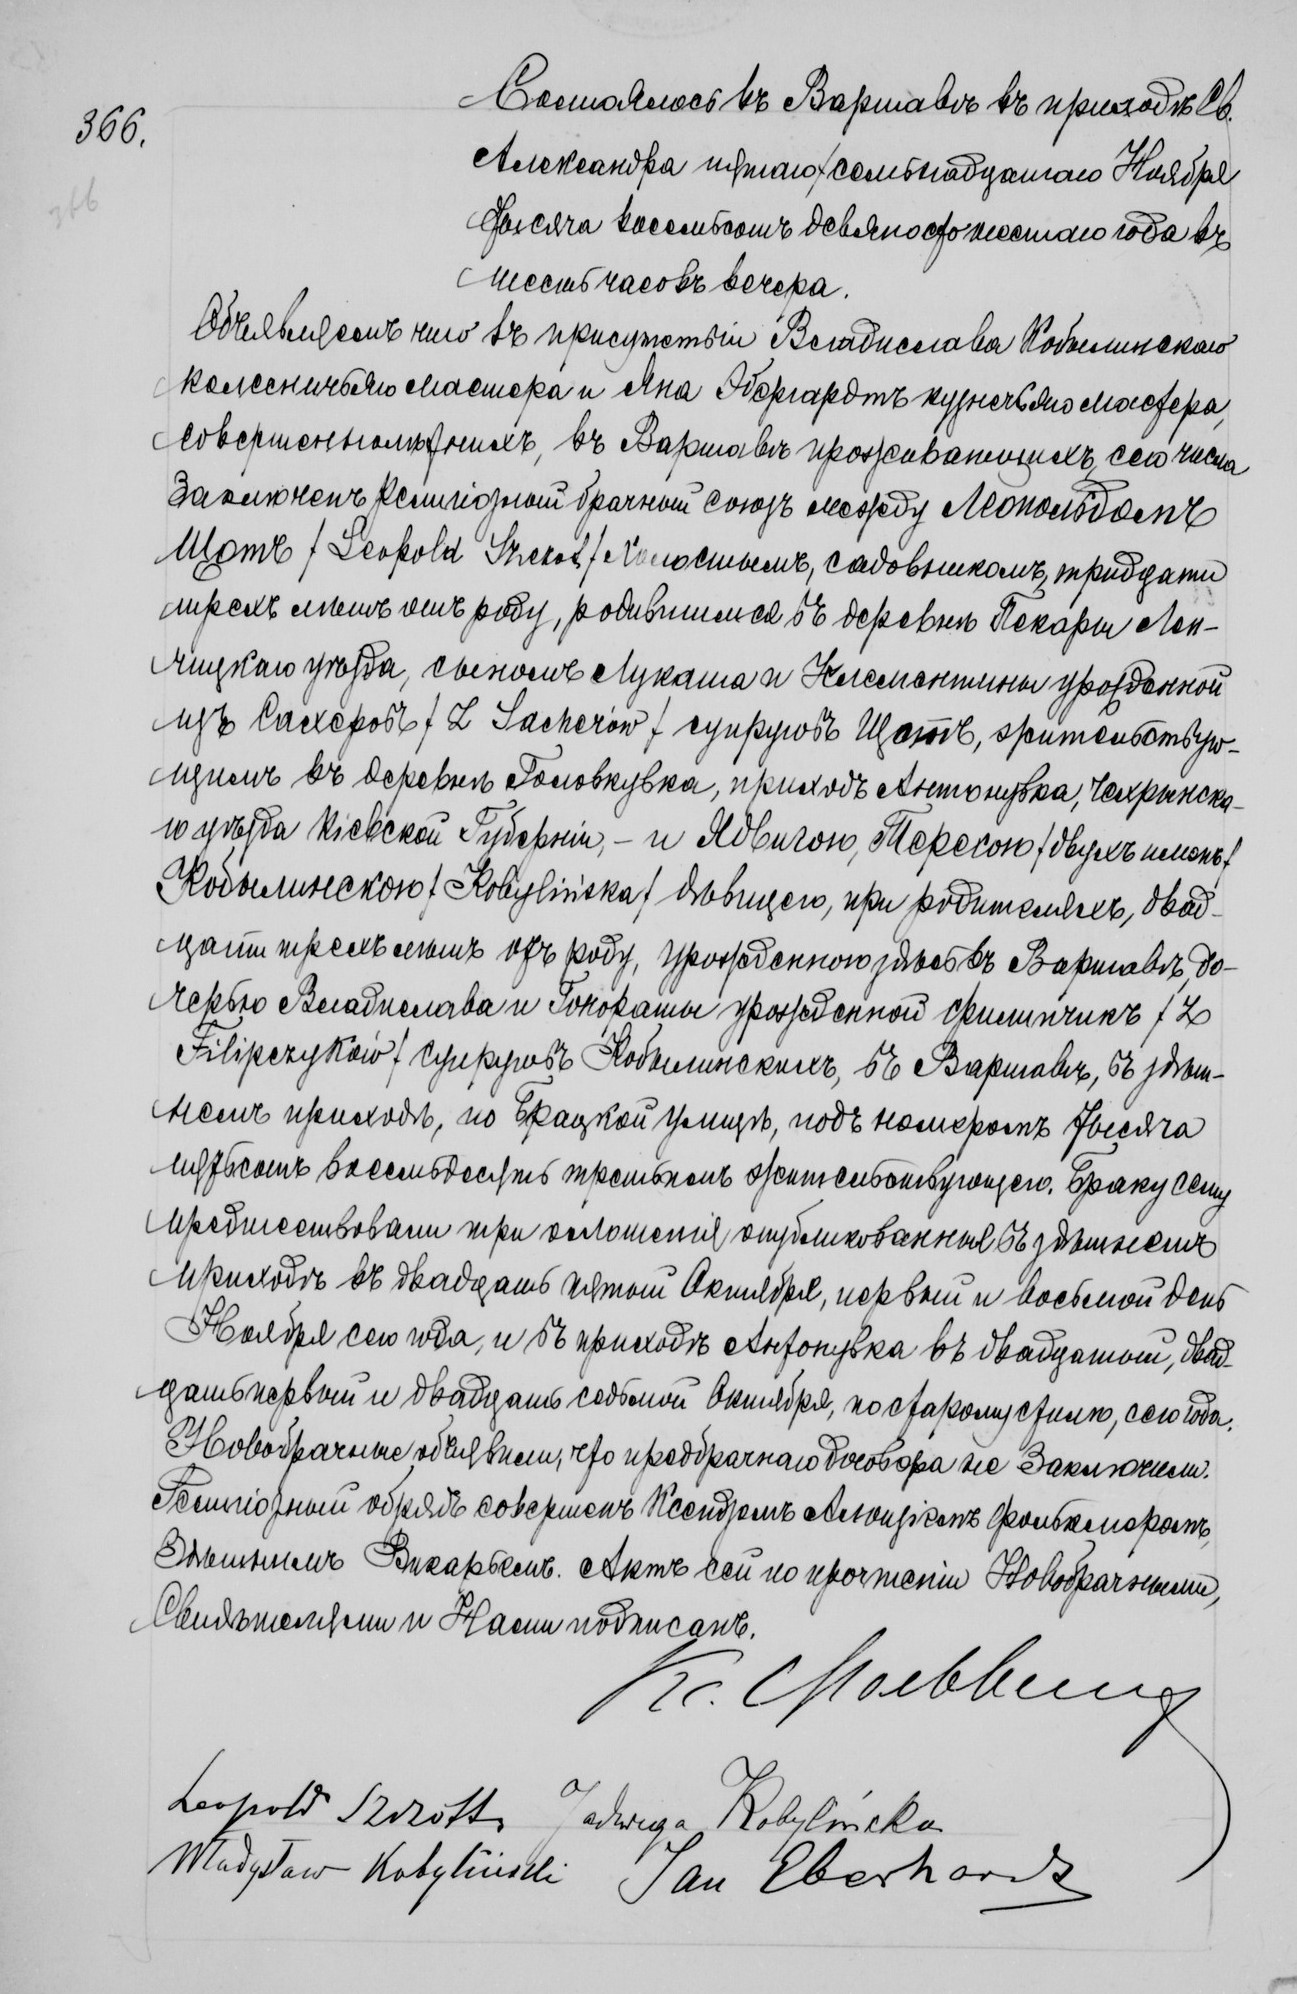 366.
Состоялось въ Варшавѣ въ приходѣ Св.
Александра пятаго/семьнадцатаго Ноября
тысяча восемьсотъ девяносто шестаго года въ
шесть часовъ вечера.
Объявляемъ что въ присутствіи Владислава Кобылинскаго
колесничьяго мастера и Яна Эбергардтъ кузнечьяго мастера,
совершеннолѣтнихъ, въ Варшавѣ проживающихъ, сего числа
заключенъ религіозный брачный союзъ между Леопольдомъ
Щотъ /Leopold Szczot/ холостымъ, садовникомъ, тридцати
трехъ лѣтъ отъ роду, родившимся въ деревнѣ Пекары Лен-
чицкаго уѣзда, сыномъ Лукаша и Клементины урожденной
изъ Сахеровъ /Z Sacherów/ супруговъ Щотъ, жительствую-
щимъ въ деревнѣ Головкувка, приходъ Антонувка, Чехрынска-
го уѣзда Кіевской Губерніи, – и Ядвигою, Терезою /двухъ именъ/
Кобылинскою /Kobylińska/ дѣвицею, при родителяхъ, двад-
цати трехъ лѣтъ отъ роду, урожденною здѣсь въ Варшавѣ, до-
черью Владислава и Гонораты урожденной Филипчикъ /Z
Filipczyków/ супруговъ Кобылинскихъ, въ Варшавѣ, въ здѣш-
немъ приходѣ, по Брацкой улицѣ, подъ номеромъ тысяча
пятьсотъ восемьдесятъ третьемъ жительствующею. Браку сему
предшествовали три оглашенія опубликованныя въ здѣшнемъ
приходѣ въ двадцать пятый Октября, первый и восьмой день
Ноября сего года, и въ приходѣ Антонувка въ двадцатый, двад-
цать первый и двадцать седьмой Октября, по старому стилю, сего года.
Новобрачные объявили, что предбрачнаго договора не заключили.
Религіозный обрядъ совершенъ Ксендзомъ Алоизіемъ Фолькмеромъ,
Здѣшнимъ Викарьемъ. Актъ сей по прочтеніи Новобрачными,
Свидѣтелями и Нами подписанъ.
Leopold Szczott Jadwiga Kobylińska
Władysław Kobyliński Jan Eberhardt